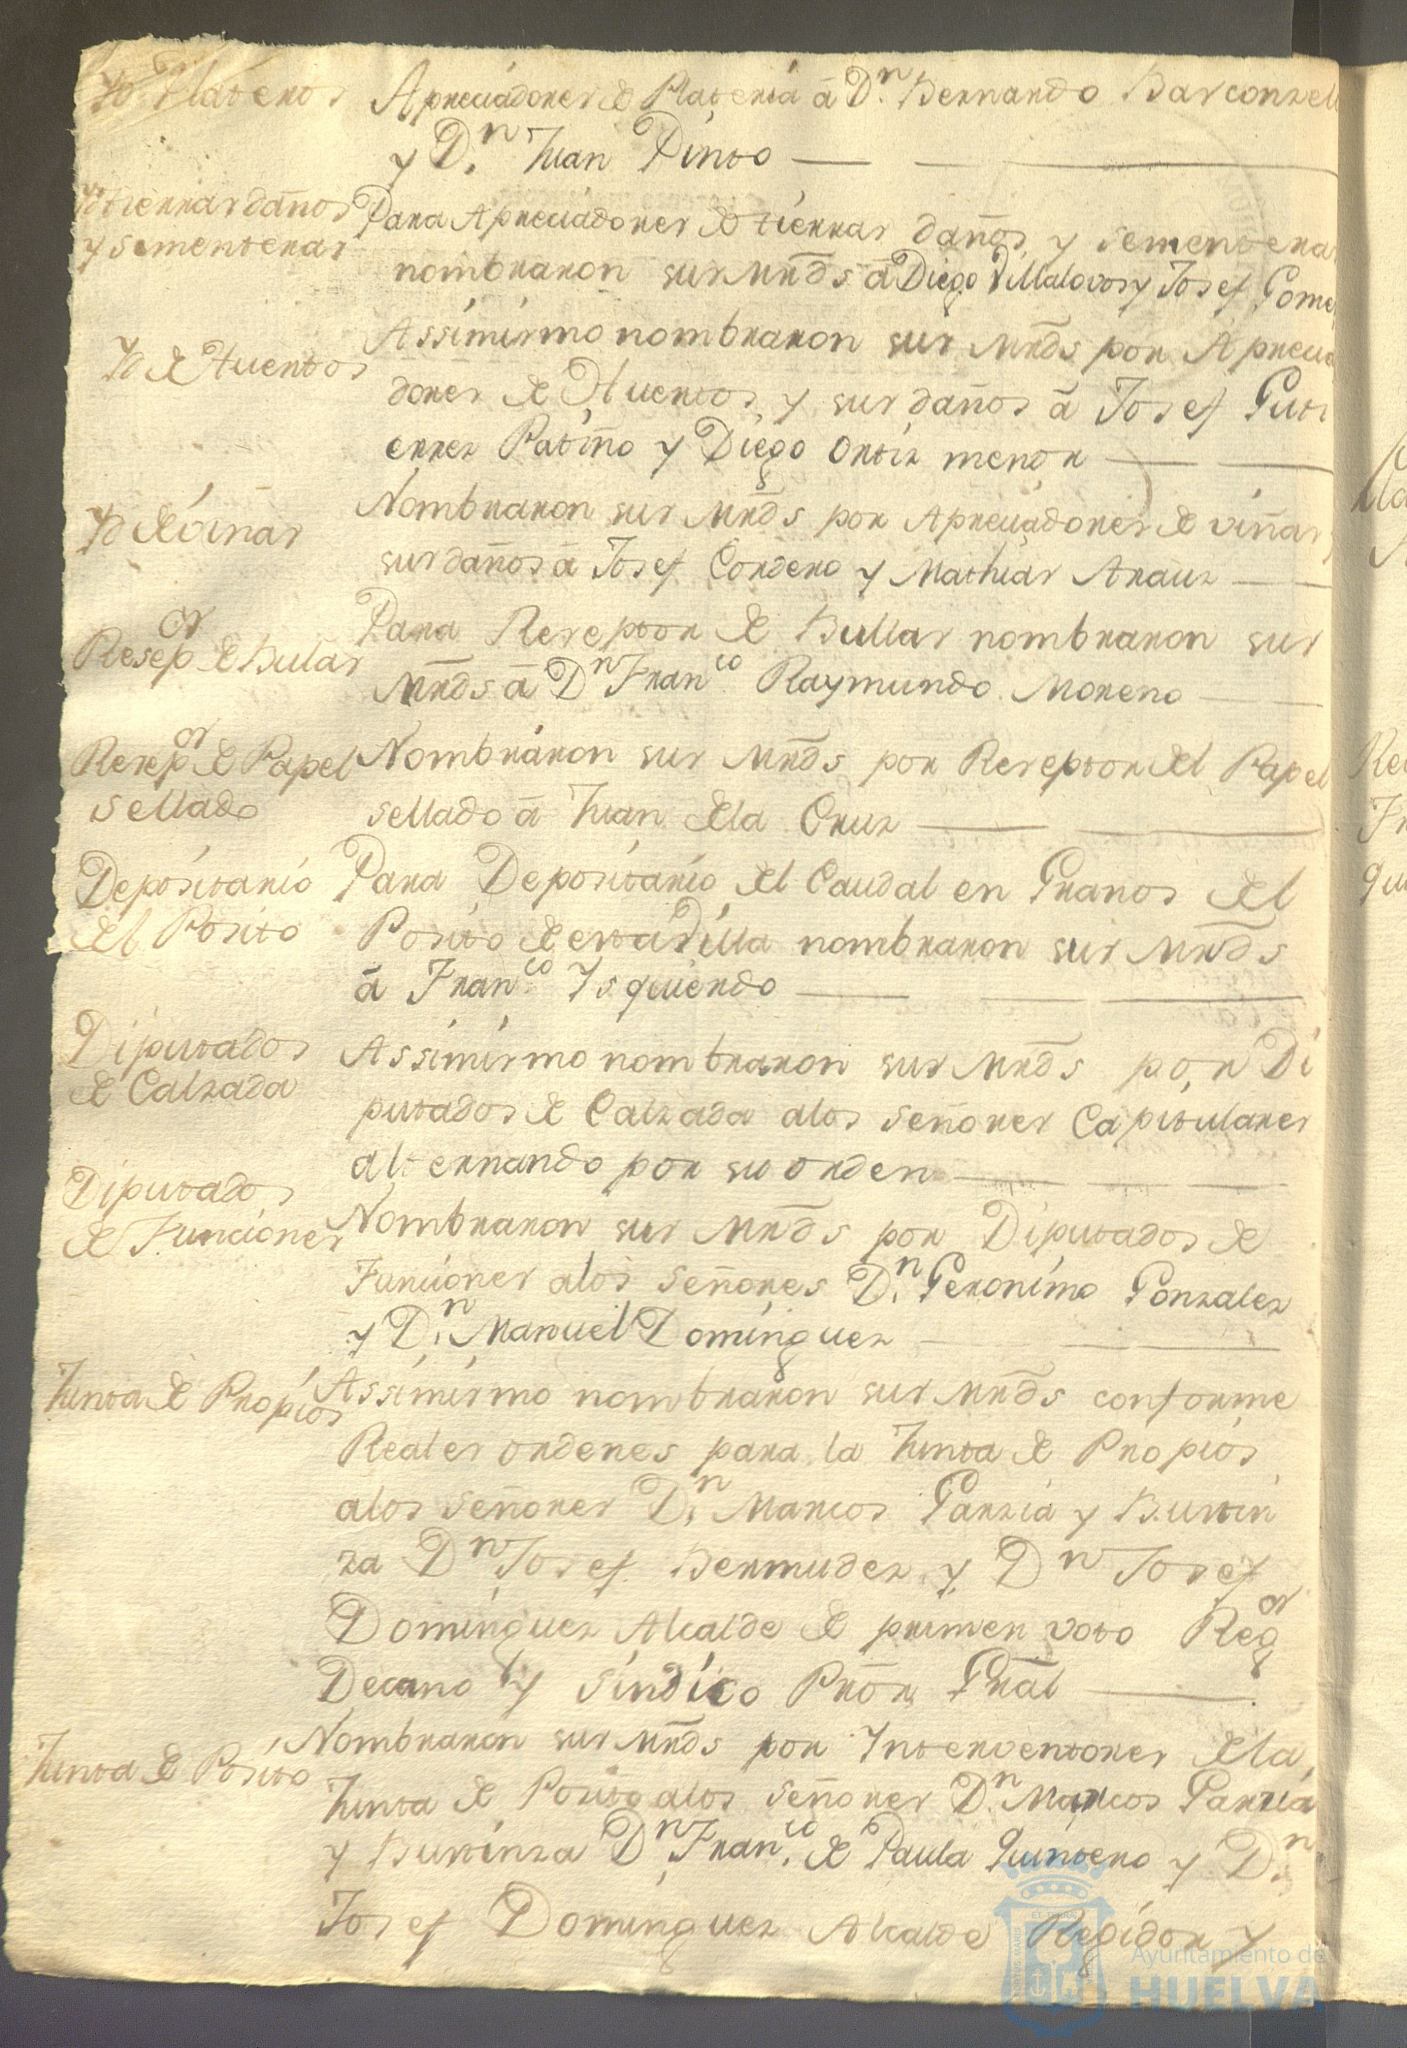 Yd Plateros
Apreciadores de Plateria â Dn. Bernando Barconzel
y Dn. Juan Pinto
Yd tierras daños
y sementeras
Para Apreciadores de tierras daños y sementera
nombraron sus Mrds â Diego Villalovos y Josef Gome
Yd de Huertos
Assimismo nombraron sus Mrds por Aprecia
dores de Huertos y sus daños â Josef Guti
errez Patiño y Diego Ortiz menor
Yd de viñas
Nombraron sus Mrds por Apreciadores de viñas
sus daños â Josef Cordero y Mathias Arauz
Resepor de Bulas
Para Reseptor de Bullas nombraron sus
Mrds â Dn Franco Raymundo Moreno
Resepor de Papel
sellado
Nombraron sus Mrds por Reseptor del Papel
sellado â Juan dela Cruz
Depositario
del Posito
Para Depositario del Caudal en Granos del
Posito de esta Villa nombraron sus Mrds
â Franco Ysquierdo
Diputados
de Calzada
Assimismo nombraron sus Mrds por Di
putados de Calzada alos señores Capitulares
alternando por su orden
Diputados
de Funciones
Nombraron sus Mrds por Diputados de
Funciones alos señores Dn. Geronimo Gonzalez
y Dn. Manuel Dominguez
Junta de Propios
Assimismo nombraron sus Mrds conforme
Reales ordenes para la Junta de Propios
alos señores Dn. Marcos Garzia y Bustin
za Dn Josef Bermudez y Dn Josef
Dominguez Alcalde de primer voto Regor
Decano y sindico Pror Gral
Junta de Posito
Nombraron sus Mrds por Interventores dela
Junta de Posito alos señores Dn. Marcos Garzia
y Bustinza Dn Franco de Paula Quintero y Dn.
Josef Dominguez Alcalde Regidor y
Ayuntamiento de
HUELVA